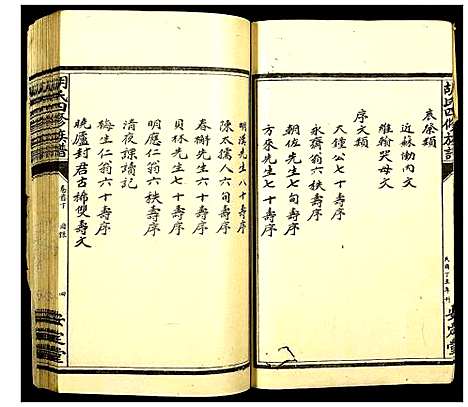 胡氏四修族譜
哀祭類
近蘇慟內文
維翰哭母文
序文類
天鍾公七十壽序
永齋翁六秩壽序
朝佐先生六十壽序
方來先生七十壽序
民國丁丑年刊
安定堂
明漢先生八十壽序
陳太孺人六旬壽序
春榭先生六十壽序
貝林先生七十壽序
明應仁翁六秩壽序
清夜課讀記
梅生仁翁六十壽序
曉廬封君古稀雙壽文
胡氏四修族譜
卷首下
目錄
四
安定堂